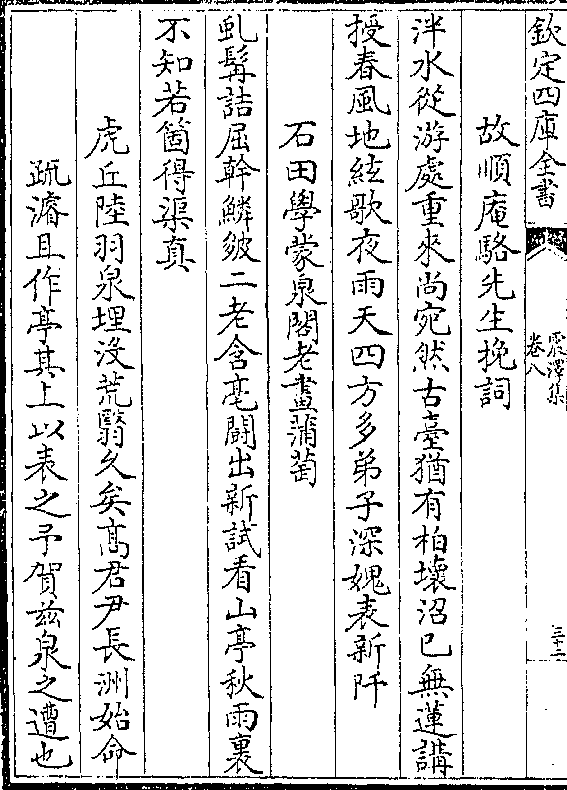 欽定四庫全書
震澤集
卷八
三十二
故順庵駱先生挽詞
泮水從游處重來尚宛然古臺猶有柏壞沼已無蓮講
授春風地絃歌夜雨天四方多弟子深媿表新阡
石田學蒙泉閣老畫蒲萄
虬髯詰屈幹鱗皴二老含毫鬬出新試看山亭秋雨裏
不知若箇得渠真
虎丘陸羽泉埋没荒翳久矣髙君尹長洲始命
疏濬且作亭其上以表之予賀兹泉之遭也